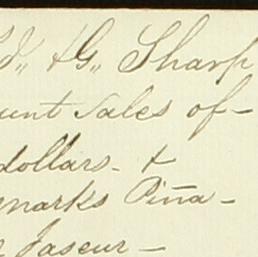 Ed,, & G,, Sharp
unt Sales of -
dollars - &
marks Pina -
r Jaseur -